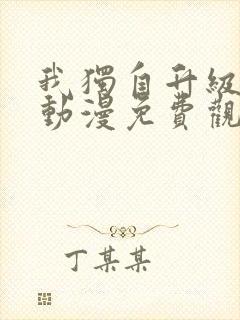 我獨自升級
動漫免費觀
丁某某